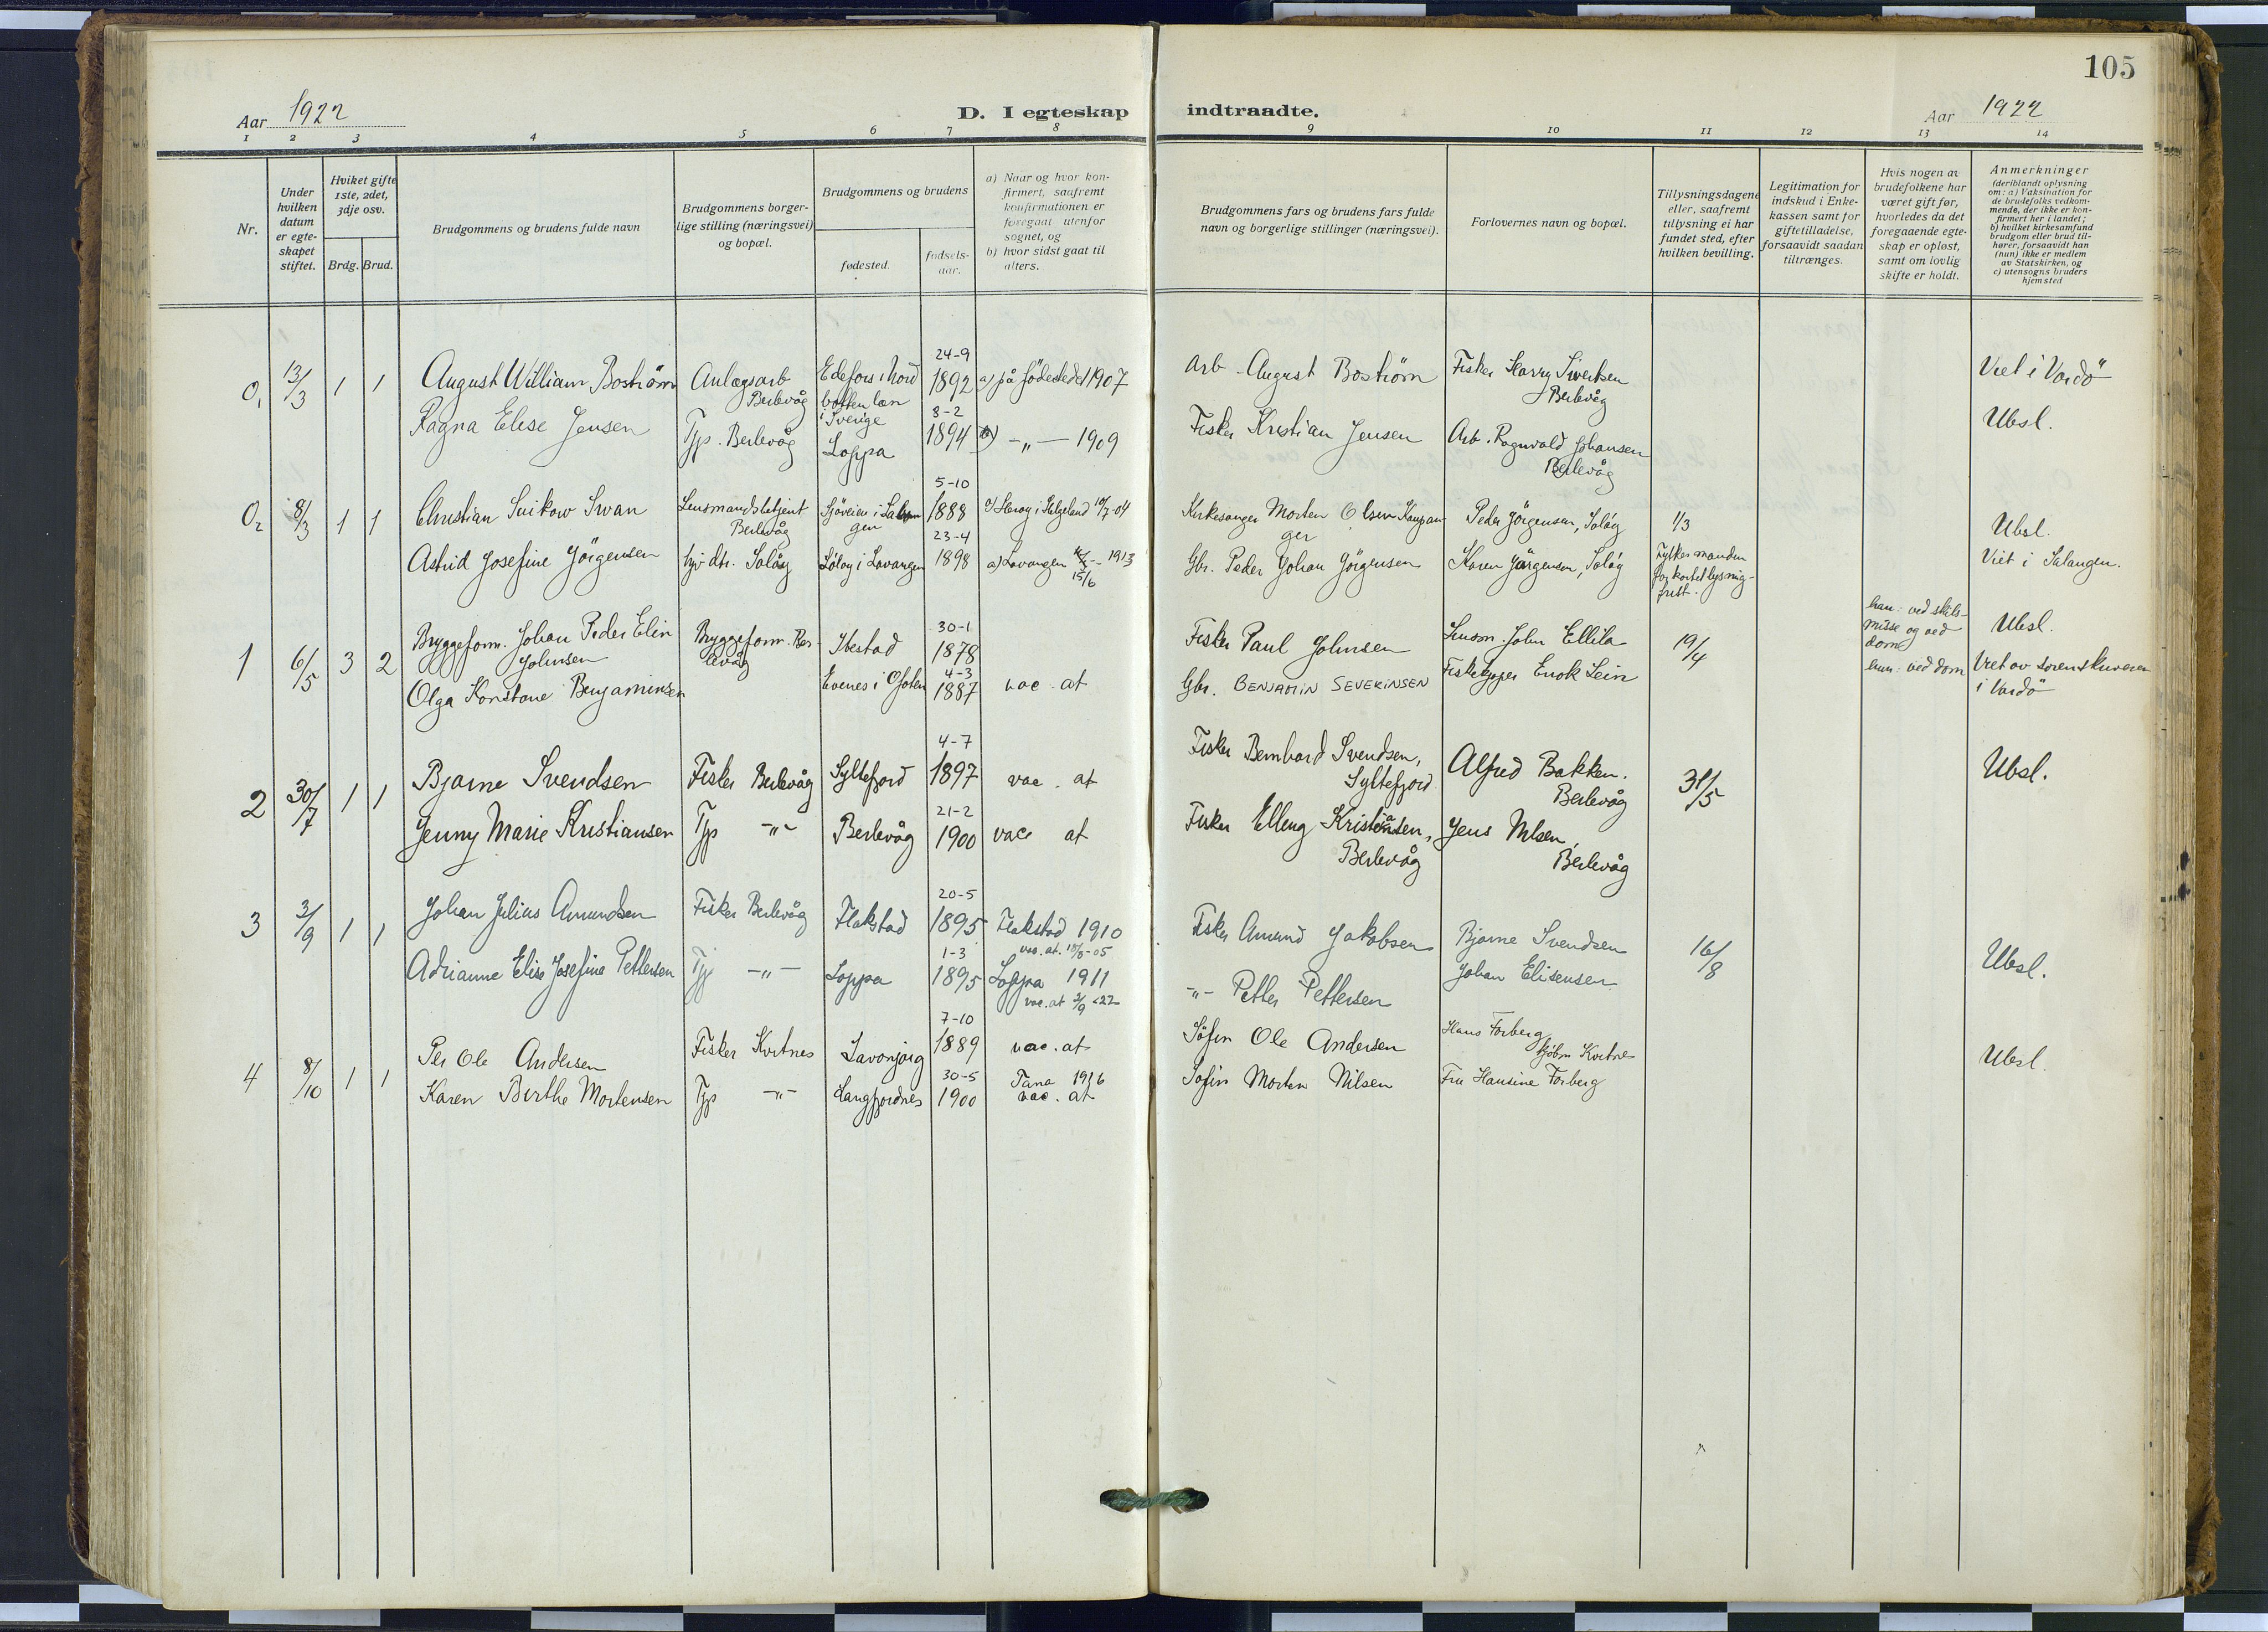 105
Aar 1922
D. I egteskap indtraadte.
Aar 1922
1 2 3 4 5 6 7 8 9 10 11 12 13 14
Nr.
Under hvilken datum er egte-skapet stiftet.
Hviket gifte 1ste, 2det, 3dje osv.
Brdg. Brud.
Brudgommens og brudens fulde navn
Brudgommens borger-lige stilling (næringsvei) og bopæl.
Brudgommens og brudens
fødested.
fødsels-aar.
a) Naar og hvor kon-firmert, saafremt konfirmationen er foregaat utenfor sognet, og
b) hvor sidst gaat til alters.
Brudgommens fars og brudens fars fulde navn og borgerlige stillinger (næringsvei).
Forlovernes navn og bopæl.
Tillysningsdagene eller, saafremt tillysning ei har fundet sted, efter hvilken bevilling.
Legitimation for indskud i Enke-kassen samt for giftetilladelse, forsaavidt saadan tiltrænges.
Hvis nogen av brudefolkene har været gift før, hvorledes da det foregaaende egte-skap er opløst, samt om lovlig skifte er holdt.
Anmerkninger
(deriblandt oplysning om: a) Vaksination for de brudefolks vedkom-mende, der ikke er kon-firmert her i landet; b) hvilket kirkesamfund brudgom eller brud til-hører, forsaavidt han (hun) ikke er medlem av Statskirken, og c) utensogns bruders hjemsted
0,1 13/3 1 1 August William Boström Anlægsarb Berlevåg Edefors i Nord botten län i Sverige 24-9 1892 a) på födestedet 1907 Arb. August Boström Fisker Harry Sivertsen Berlevåg Viet i Vardö
Ragna Elise Jensen Tjp. Berlevåg Loppa 8-2 1894 a) -"- 1909 Fisker Kristian Jensen Arb. Ragnvald Johansen Berlevåg Ubsl.
02 8/3 1 1 Christian Suikow Swan Lensmandsbetjent Berlevåg Sjöveien i Salangen 5-10 1888 a) Heröy i Helgeland 10/7-04 Kirkesanger Morten Olsen Peder Jörgensen, Solöy 1/3 Ubsl.
Astrid Josefine Jörgensen Solöy Löløy i Lavangen 23-4 1898 a) Lavangen 15/6 1913 Gbr. Peder Johan Jörgensen Karen Jörgensen, Solöy Fylkesmanden forkortet lysnings-frist. Viet i Salangen.
1 6/5 3 2 Byggeform. Johan Peder Elin Johnsen Bryggeform. Berlevåg Ibestad 30-1 1878 Fisker Paul Johnsen Lensm. John Ellila 19/4 han: ved skils-misse og ved dom Ubsl.
Olga Konstane Benjaminsen Evenes i Ofoten 4-3 1887 vac. at Gbr. BENJAMIN SEVERINSEN Fiskekjøper Enok Lein hun: ved dom Viet av sorenskriveren i Vardö
2 30/7 1 1 Bjarne Svendsen Fisker Berlevåg Syltefjord 4-7 1897 vac. at Fisker Bernhard Svendsen, Syltefjord Alfred Bakken. Berlevåg 31/5 Ubsl.
Jenny Marie Kristiansen Tjp -"- Berlevåg 21-2 1900 vac at Fisker Elleng Kristiansen, Berlevåg Jens Nilsen, Berlevåg
3 3/9 1 1 Johan Julius Amundsen Fisker Berlevåg Flakstad 20-5 1895 Flakstad 1910 vac. at. 18/8-05 Fisker Amund Jakobsen Bjarne Svendsen 16/8 Ubsl.
Adrianne Elise Josefine Pettersen Tjp -"- Loppa 1-3 1895 Loppa 1911 vac. at 3/9 22 -"- Petter Pettersen Johan Elisensen
4 8/10 1 1 Per Ole Andersen Fisker Kvitnes Lavonjarg 7-10 1889 vac. at Søfin Ole Andersen Hans Forberg kjöbm Kvitnes Ubsl.
Karen Birthe Mortensen Tjp -"- Langfjordnes 30-5 1900 Tana 1916 vac. at Søfin Morten Nilsen Fru Hansine Forberg